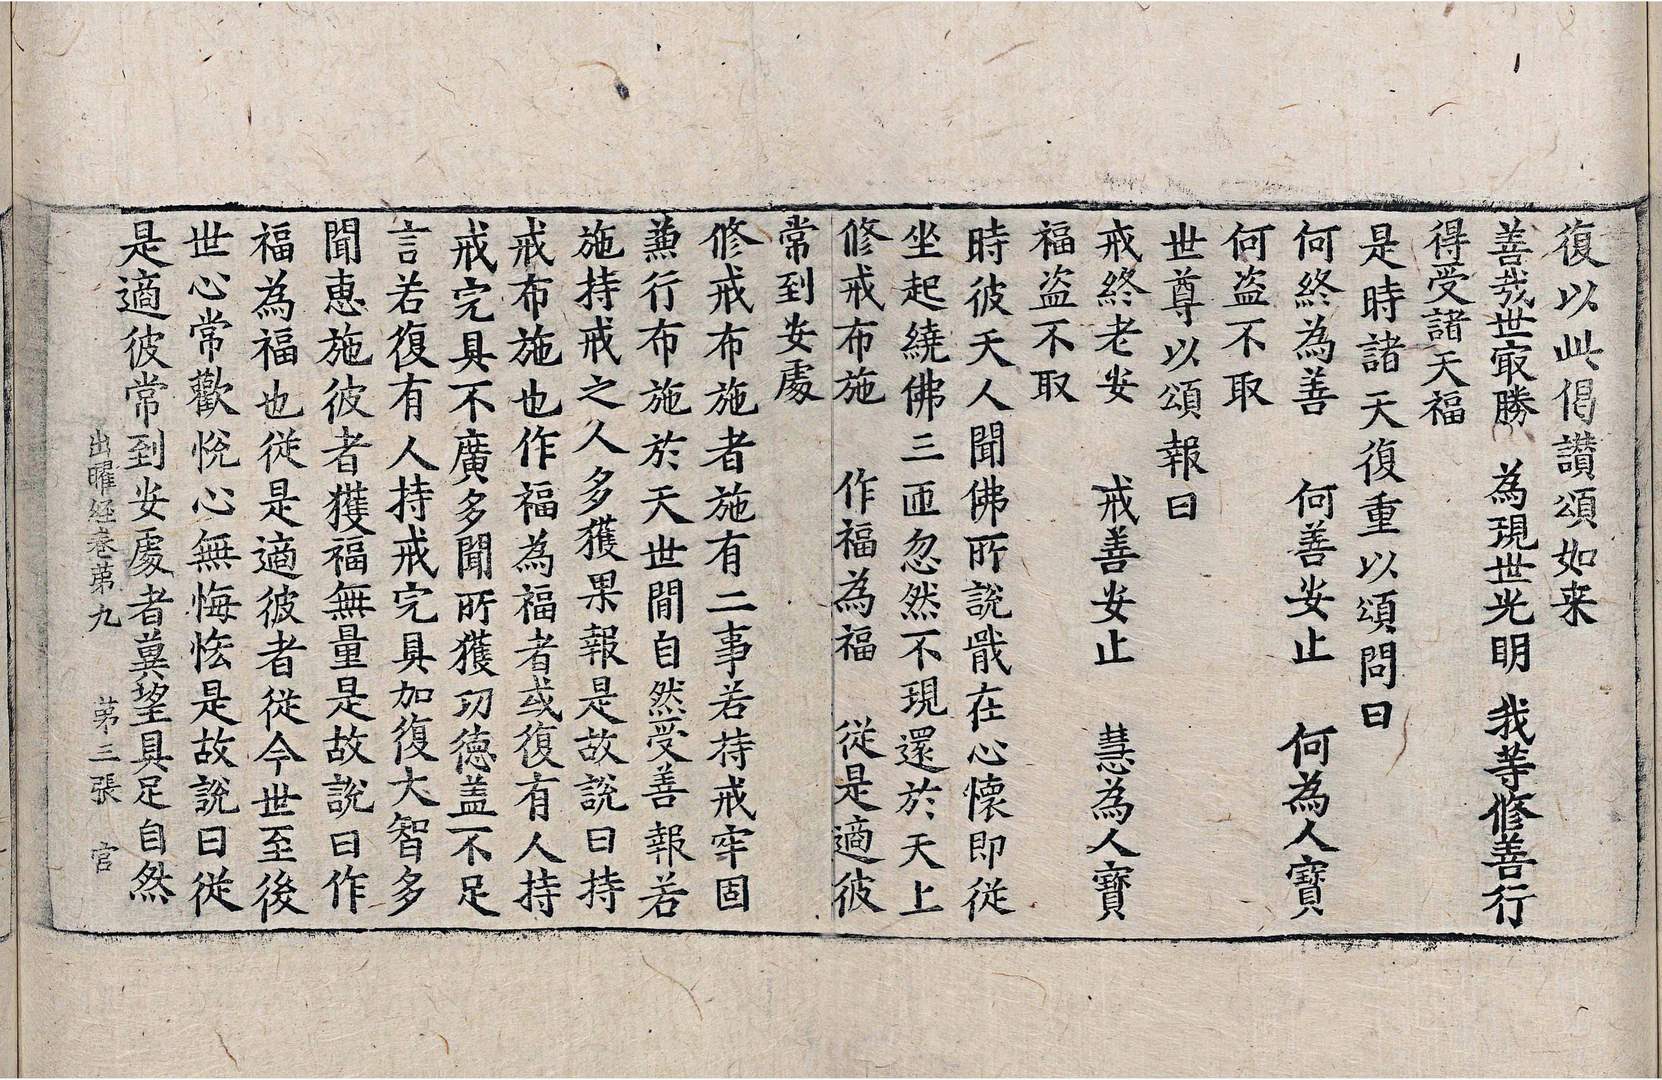 復以此偈讃頌如来
善㢤世㝡勝　為現世光明　我等修善行
得受諸天福
是時諸天復重以頌問曰
何終為善　何善安止　何為人寶
何盗不取
世尊以頌報曰
戒終老安　戒善安止　慧為人寶
福盗不取
時彼天人聞佛所說戢在心懷即従
坐起繞佛三匝忽然不現還於天上
修戒布施　作福為福　従是適彼
常到安處
修戒布施者施有二事若持戒牢固
蕪行布施於天世間自然受善報若
施持戒之人多獲果報是故說曰持
戒布施也作福為福者或復有人持
戒完具不廣多聞所獲功徳盖不足
言若復有人持戒完具加復大智多
聞惠施彼者獲福無量是故說曰作
福為福也従是適彼者従今世至後
世心常歡悅心無悔恡是故說曰従
是適彼常到安處者冀望具足自然
出曜経巻苐九　苐三張　官